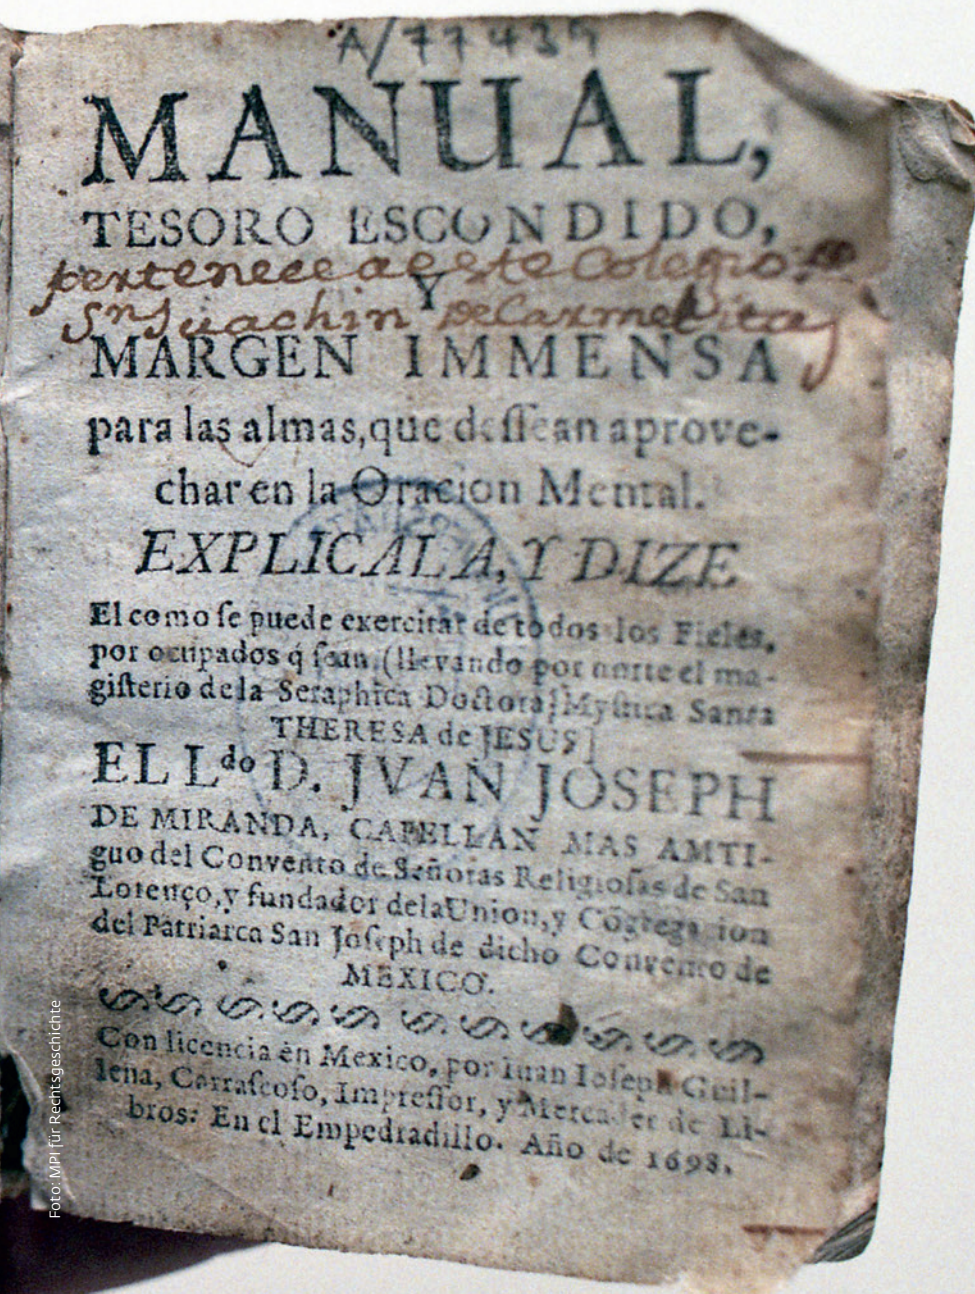 A/77439
MANUAL,
TESORO ESCONDIDO,
pertenece a este Colegio de
Y
Sn Juachin de Carmelitas
MARGEN IMMENSA
para las almas, que dessean aprove-
char en la Oracion Mental.
EXPLICALA, Y DIZE
El como se puede exercitar de todos los Fieles,
por ocupados q̃ sean, (llevando por norte el ma-
gisterio de la Seraphica Doctora, Mystica Santa
THERESA de JESUS]
EL Ldo D. JVAN JOSEPH
DE MIRANDA, CAPELLAN MAS AMTI-
guo del Convento de Señoras Religiosas de San
Lorenço, y fundador de la Union, y Cõgregacion
del Patriarca San Joseph de dicho Convento de
MEXICO.
Con licencia en Mexico, por Iuan Ioseph Guil-
lena, Carrascoso, Impressor, y Mercader de Li-
bros: En el Empedradillo. Año de 1698.
Foto: MPI für Rechtsgeschichte